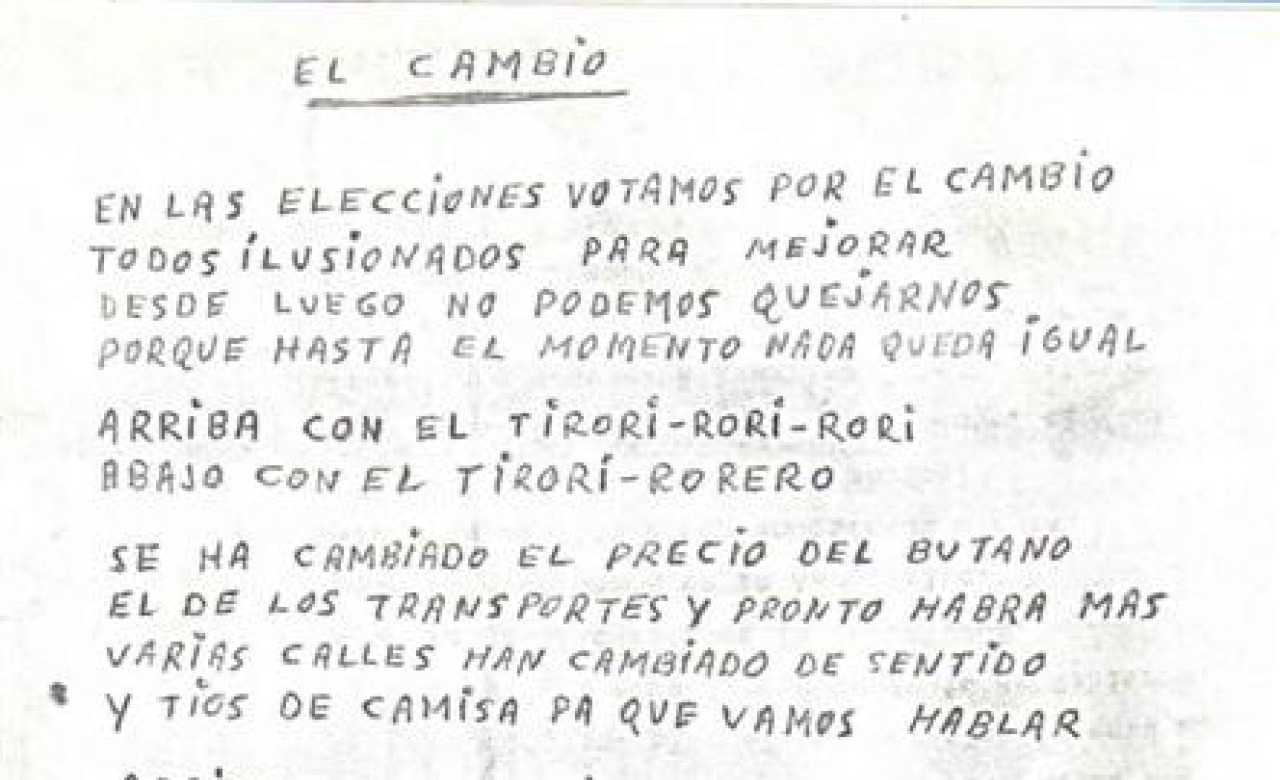 EL CAMBiO
EN LAS ELECCiONES VOTAMOS POR EL CAMBiO
TODOS iLUSiONADOS PARA MEJORAR
DESDE LUEGO NO PODEMOS QUEJARNOS
PORQUE HASTA EL MOMENTO NADA QUEDA iGUAL
ARRiBA CON EL TiRORi-RORi-RORi
ABAJO CON EL TiRORi-RORERO
SE HA CAMBiADO EL PRECiO DEL BUTANO
EL DE LOS TRANSPORTES Y PRONTO HABRA MAS
VARiAS CALLES HAN CAMBiADO DE SENTiDO
Y TiOS DE CAMiSA PA QUE VAMOS HABLAR